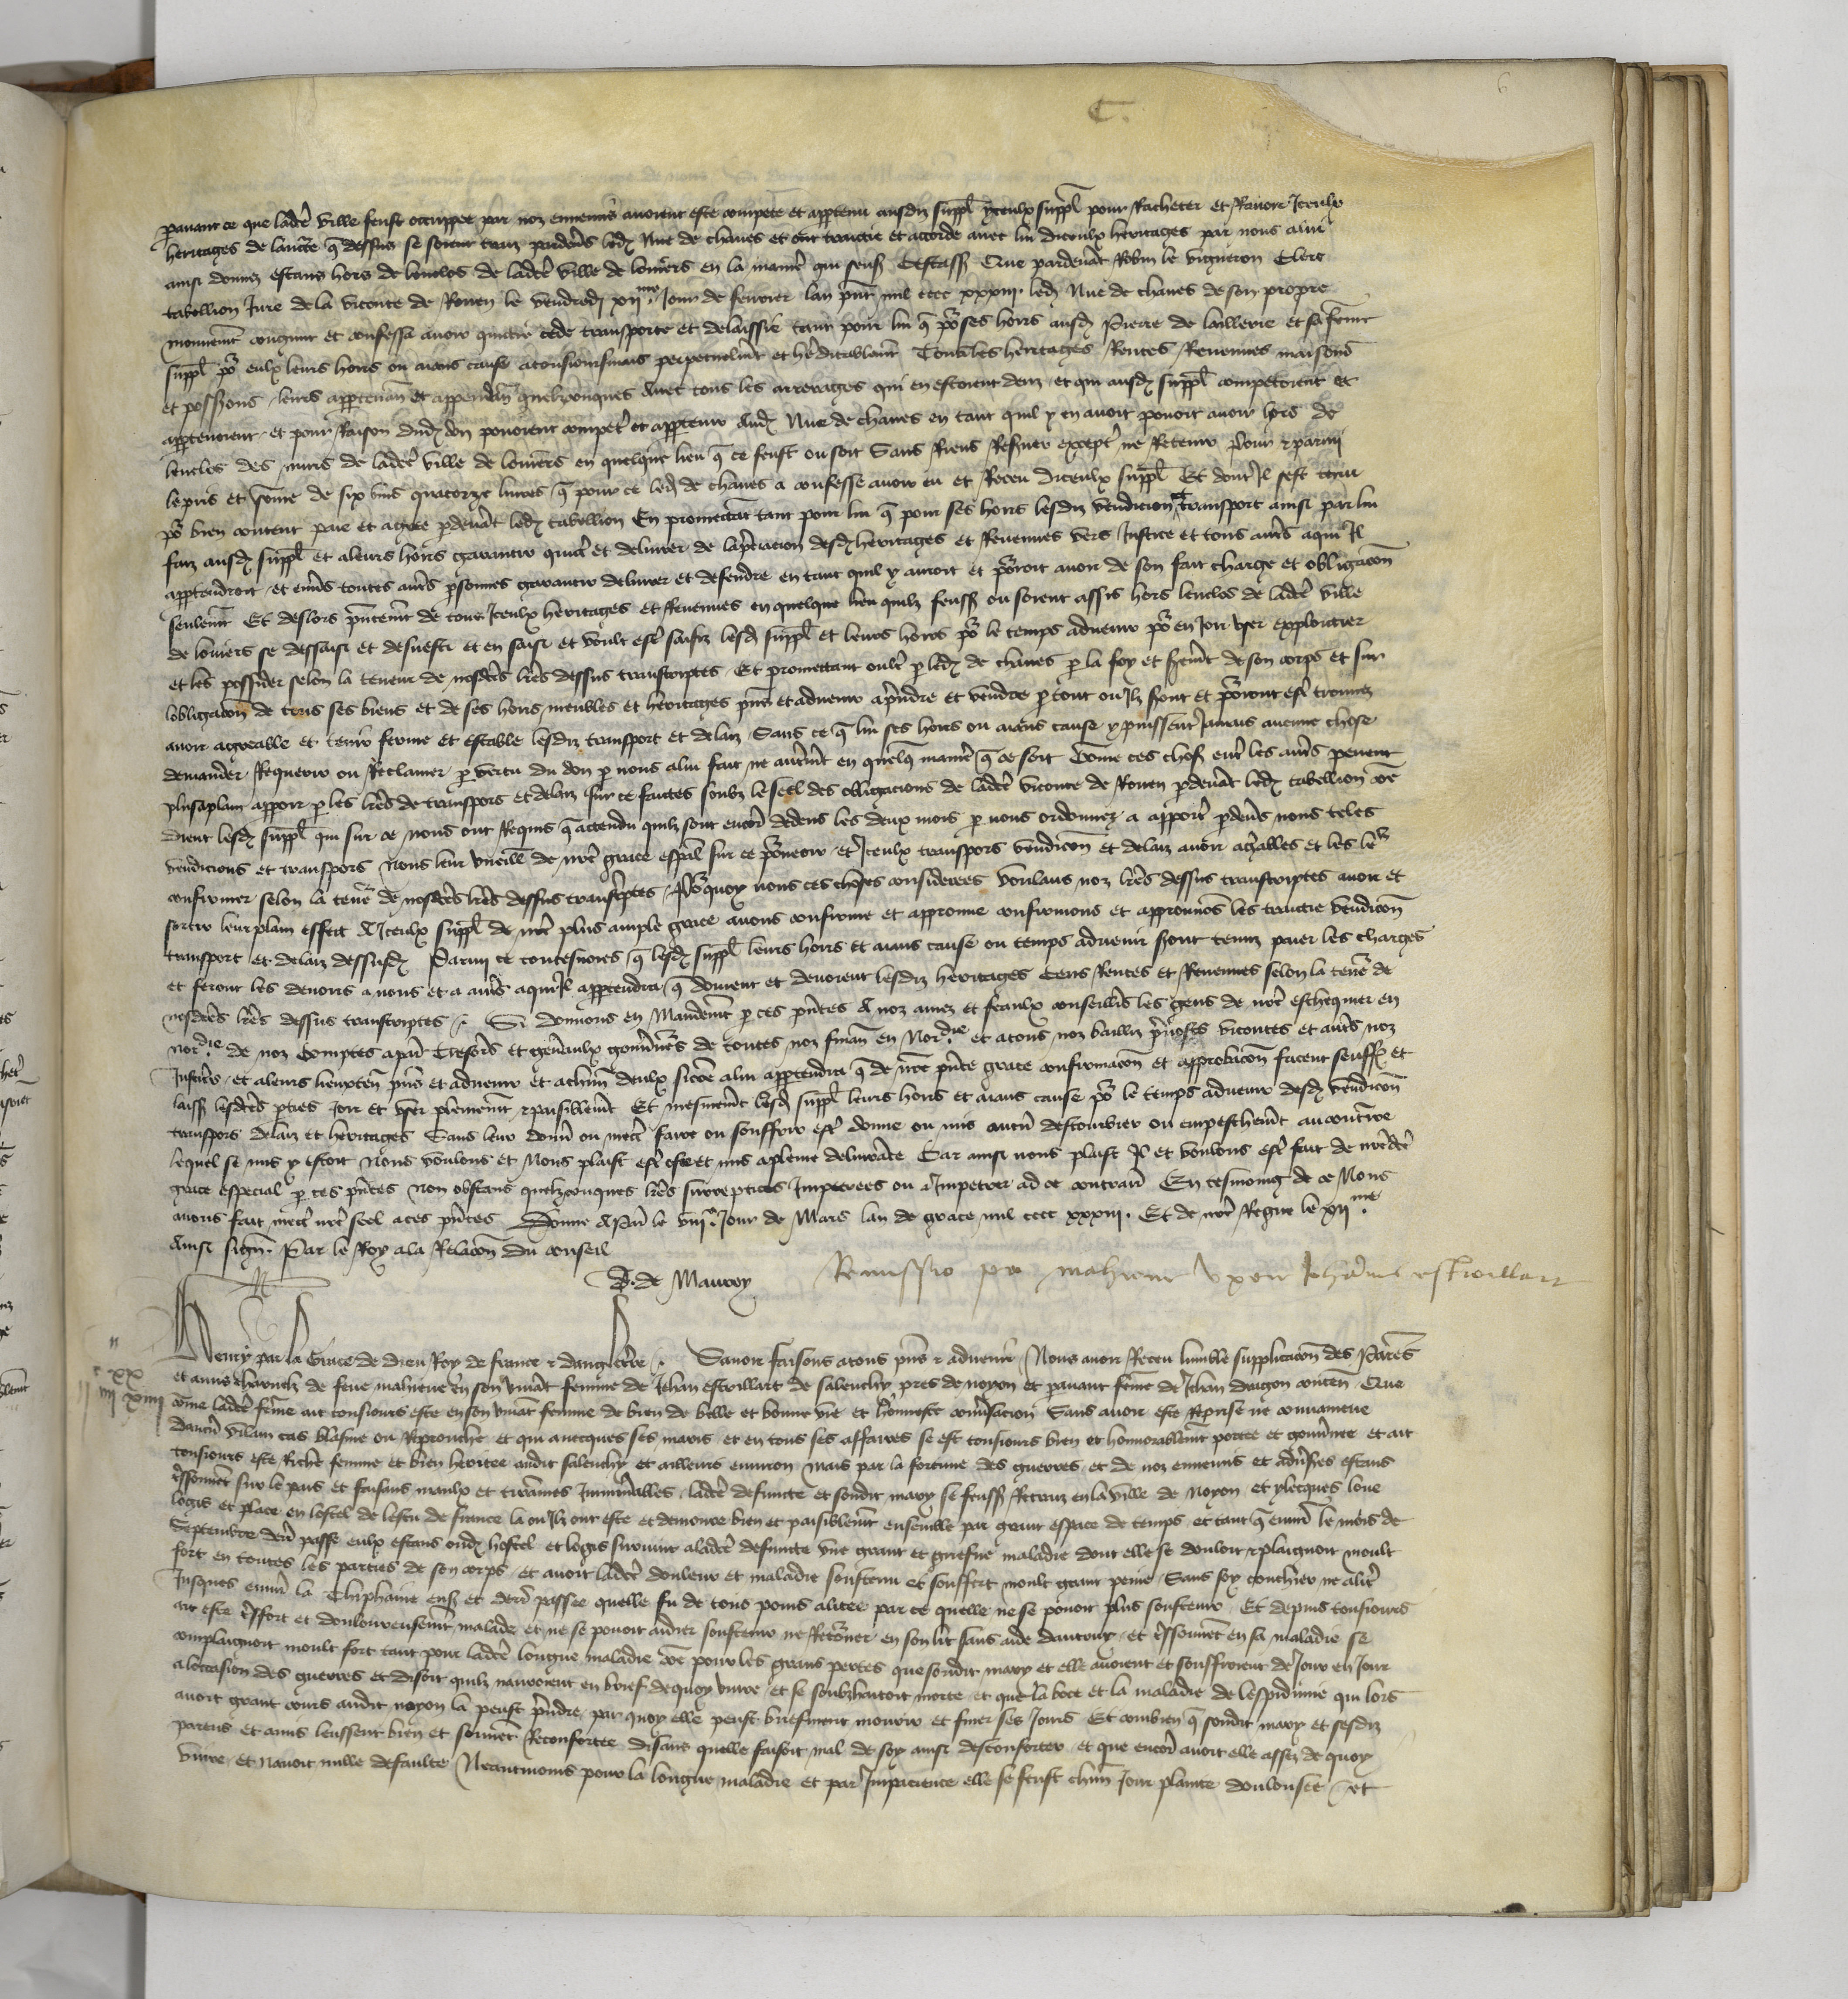 6
C.
pauant ce que ladcē ville feust occuppee par noz ennemis auoient este compete et apptenu ausdiz suppl yceulx suppl pour Racheter et Rauoir Iceulx
heritages de lauctē q̄ dessus se soient traiz pardeūs ledꝫ Nuc de chaues et ont traictie et accorde auec lui diceulx heritages par nous a lui
ainsi donnez estans hors de lenclos de ladcē ville de louiers en la maniē qui senss Cestass Que pardeuāt Robin le vigneron Clerc
tabellion Iure de la viconte de Rouen le vendredj xijme Iour de feurier lan pn̄t mil cccc xxxiij. ledꝫ Nuc de chaues de son propre
mouuemēt congnut et confessa auoir quictie cede transporte et delaissie tant pour lui q̄ po ses hoirs ausdꝫ Pierre de laillerie et sa femē
suppl po eulx leurs hoirs ou aians cause atousioursmais perpetuelmēt et heditablemēt Tous les heritages Rentes Reuenues maisons
et possess̄ons leurs appartenan̄ et appenden̄ quelzconques Auec tous les arrerages qui en estoient deuz et qui ausdꝫ suppl competoient et
appartenoient et pour Raison dudꝫ don pouoient compet̄ et apptenir Audꝫ Nuc de chaues en tant quil y en auoit pouoit auoir hors de
lenclos des murs de ladcē ville de louiers en quelque lieu q̄ ce feust ou soit Sans Riens Resuer except̄ ne Retenir Pour & parmi
le pris et some de six vins quatorze liures q̄ pour ce ledꝫ de chaues a confesse auoir eu et Receu diceulx suppl Et dont Il sest tenu
po bien content paie et agree pdeuāt ledꝫ tabellion En promectāt tant pour lui q̄ pour ses hoirs lesdiz vendicion et transport ainsi par lui
faiz ausdꝫ suppl et a leurs hoirs garantir quict̄ et deliurer de lap̄ciacion desdꝫ heritages et Reuenues vers Iustice et tous aut̄s aqui Il
apptendroit et enuers toutes aut̄s psonnes garantir deliurer et defendre en tant quil y auroit et poroit auoir de son fait charge et obligacōn
seulemēt Et deslors pn̄temēt de tous Iceulx heritages et Reuenues en quelque lieu quilz feuss ou soient assis hors lenclos de ladcē ville
de louiers se dessaisi et desuesti et en saisi et voult est̄ saisiz lesdꝫ suppl et leurs hoirs po le temps aduenir po en Ioir vser exploictier
et les posseder selon la teneur de nosdcēs lr̄es dessus transcriptes Et promectant oultr̄ p ledꝫ de chaues p la foy et sermēt de son corps et sur
lobligacōn de tous ses biens et de ses hoirs meubles et heritages pn̄s et aduenir a pn̄dre et vendre p tout ou Ilz sont et poront est̄ trouuez
auoir agreable et tenir ferme et estable lesdiz transport et delaiz Sans ce q̄ lui ses hoirs ou aians cause y puissent Iamais aucune chose
demander Requerir ou Reclamer p vertu du don p nous a lui fait ne autremēt en quelq̄ maniē q̄ ce soit Come ces choss entr̄ les aut̄s peuent
plusaplain apparoir p les lr̄es de transpors et delaiz sur ce faictes soubz le seel des obligacions de ladcē viconte de Rouen pdeuāt ledꝫ tabellion cōe
dient lesdꝫ suppl qui sur ce nous ont Requis q̄ actendu quilz sont encor̄ dedens les deux mois p nous ordonnez a apport̄ pdeūs nous teles
vendicions et transpors Nous leur vueill de nrē grace esp̄al sur ce poueoir et Iceulx transpors vendicōn et delaiz auoir aḡables et les leur
confirmer selon la teneur de nosdcēs lr̄es dessus transcriptes Po quoy nous ces choses considerees Voulans noz lr̄es dessus transcriptes auoir et
sortir leur plain effect A Iceulx suppl de nrē plus ample grace auons conferme et approuue confirmons et approuuōs les traictie vendicōn
transport et delaiz dessusdꝫ Parmi ce toutesuoies q̄ lesdꝫ suppl leurs hoirs et aians cause ou temps aduenir sont tenuz paier les charges
et feront les deuoirs a nous et a aut̄s aqui Il apptendra q̄ doiuent et deuoient lesdiz heritages Cens Rentes et Reuenues selon la teneur de
nosdcēs lr̄es dessus transcriptes Si donnons en Mandemēt p ces pn̄tes A noz amez et feaulx conseillers les gens de nrē eschequier en
Nordie de noz comptes a par̄ Tresoriers et gen̄aulx gouūneurs de toutes noz finan̄ en Nordie et atous noz bailliz pr̄uosts vicontes et aut̄s noz
Iusticiers et aleurs lieuxten̄ pn̄s et aduenir et achun̄ deulx sicōe alui apptendra q̄ de nrē pn̄te grace confirmacōn et approbacōn facent seuffr̄ et
laiss lesdcēs pties Ioir et vser plenemēt & paisiblemēt Et mesmemēt lesdꝫ suppl leurs hoirs et aians cause po le temps aduenir desdꝫ vendicōn
transpors delaiz et heritages Sans leur donner ou mectr̄ faire ou souffrir est̄ donne ou mis aucun destourbier ou empeschemēt au contraire
lequel se mis y estoit Nous voulons et Nous plaist est̄ oste et mis aplene deliurāce Car ainsi nous plaist Il et voulons est̄ fait de nrē dcē
grace especial p ces pn̄tes Non obstans quelzconques lr̄es surreptices Impetrees ou a Impetrer ad ce contrair̄ En tesmoing de ce Nous
auons fait mectr̄ nrē seel aces pn̄tes Donne A Paris le viije Iour de Mars lan de grace mil cccc xxxiij. Et de nrē Regne le xijme.
Ainsi signe. Par le Roy ala Relacōn du conseil
D. de Mauroy Remissio pro mahieue vxore Iohannis estoillart
Henry par la Grace de dieu Roy de france & dangleterre Sauoir faisons atous pn̄s & aduenir Nous auoir Receu lumble supplicacōn des Parēs
et amis charnelz de feue mahieue en son viuāt femme de Iehan estoillart de salenchy pres de noyon et pauant feme de Iehan dragon conten̄ Que
n
c xx
iiij xiiij
cōme ladcē feme ait tousiours este en son viuāt femme de bien de belle et bonne vie et honneste conūsacion Sans auoir este Reprise ne conuaincue
daucū vilain cas blasme ou Reprouche et qui auecques ses maris et en tous ses affaires se est tousiours bien et honnorablemēt portee et gouūnee et ait
tousiours este Riche femme et bien heritee audit salenchy et ailleurs enuiron mais par la fortune des guerres et de noz ennemis et aduersaires estans
tressouuēt sur le pais et faisans maulx et tirannies Innumerables ladcē defuncte et sondit mary se feuss Retraiz en la ville de noyon et ylecques loue
logis et place en lostel de lescu de france la ou Ilz ont este et demoure bien et paisiblemēt ensemble par grant espace de temps et tant q̄ enuirō le mois de
Septembre derr̄ passe eulx estans oudꝫ hostel et logis suruint a ladcē defuncte vne grant et griefue maladie dont elle se douloit & plaignoit moult
fort en toutes les parties de son corps et auoit ladcē douleur et maladie soustenu et souffert moult grant peine Sans soy couchier ne alict̄
Iusques enuirō la Thiphaine enss et derr̄ passee quelle fu de tous poins alitee par ce quelle ne se pouoit plus soustenir Et depuis tousiours
ait este tresfort et doulourusemēt malade et ne se pouoit aidier soustenir ne Retourner en son lit sans aide dautruy et tressouuēt en sa maladie se
complaignoit moult fort tant pour ladcē longue maladie cōe pour les grans pertes que sondit mary et elle auoient et souffroient de Iour en Iour
a loccasion des guerres et disoit quilz nauroient en brief dequoy viure et se soubzhaitoit morte et que la boce et la maladie de lespidimie qui lors
auoit grant cours audit noyon la peust pn̄dre par quoy elle peust briefment mourir et finer ses Iours Et combien q̄ sondit mary et sesdiz
parens et amis leussent bien et souuēt Reconfortee disans quelle faisoit mal de soy ainsi desconforter et que encor̄ auoit elle assez de quoy
viure et nauoit nulle defaulte Neantmoins pour la longue maladie et par Impacience elle se feust chūn Iour plainte doulousee et